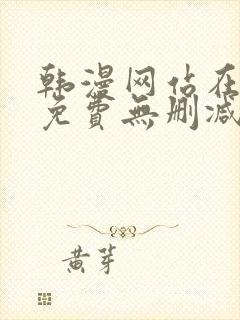 韩漫网站在
免費無删减
黄芽